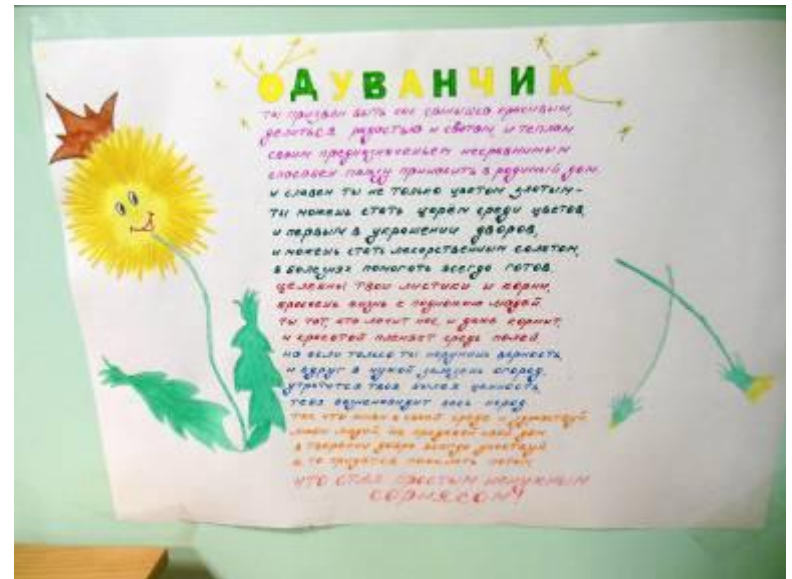 ОДУВАНЧИК
ты призван быть как солнышко красивым,
делиться радостью и светом, и теплом
своим предназначеньем несравнимым
способен пользу приносить в родимый дом.
и славен ты не только цветом злотым-
ты можешь стать царём среди цветов,
и первым в украшении дворов,
и можешь стать лекарственным салатом,
в болезнях помогать всегда готов.
целебны твои листики и корни,
продлишь жизнь с подмогою людей
ты тот, кто лечит нас, и даже кормит,
и красотой пленяет средь полей
но если только ты нарушишь верность
и вдруг в чужой залезешь огород,
утратится твоя былая ценность,
тебя возненавидит весь народ.
так что живи в своей среде и
люби людей, не свой дом
в творении добра всегда
а то придётся потом,
что стал простым ненужным
сорняком!